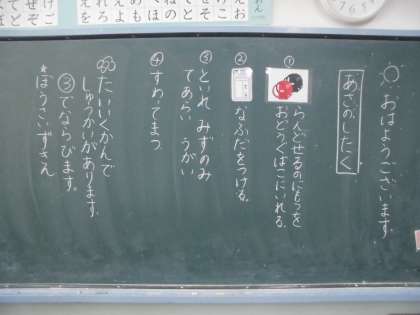 おはようございます。
あさのしたく
①
らんどせるのにもつを
おどうぐばこにいれる。
②
なふだをつける。
③といれ みずのみ
てあらい うがい
④
すわってまつ
たいいくかんで
しゅうかいがあります。
③でならびます。
*ぼうさいずきん